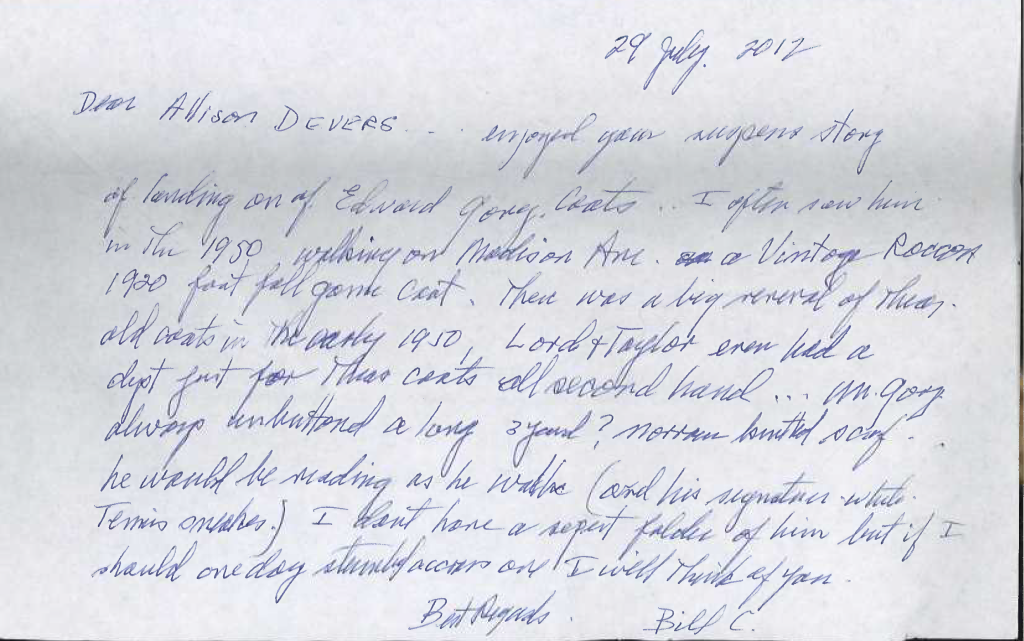 29 July. 2012
Dear Allison DEVERS... enjoyed your suspens story
of landing on of. Edward Gorey. Coats.. I often saw him
in the 1950 walking on Madison Ave. a Vintage Raccoon
1920 foot ball game Coat. There was a big revival of these.
old coats in the early 1950, Lord & Taylor even had a
dept just for these coats all second hand... Mr. Gorey
always unbuttond a long 3 yard? narrow knitted scarf.
he would be reading as he walks (and his signature white.
Tennis sneakers.) I don't have a sepert folder of him but if I
should one day stumbl accross one I will think of you.
Best Regards. Bill C.